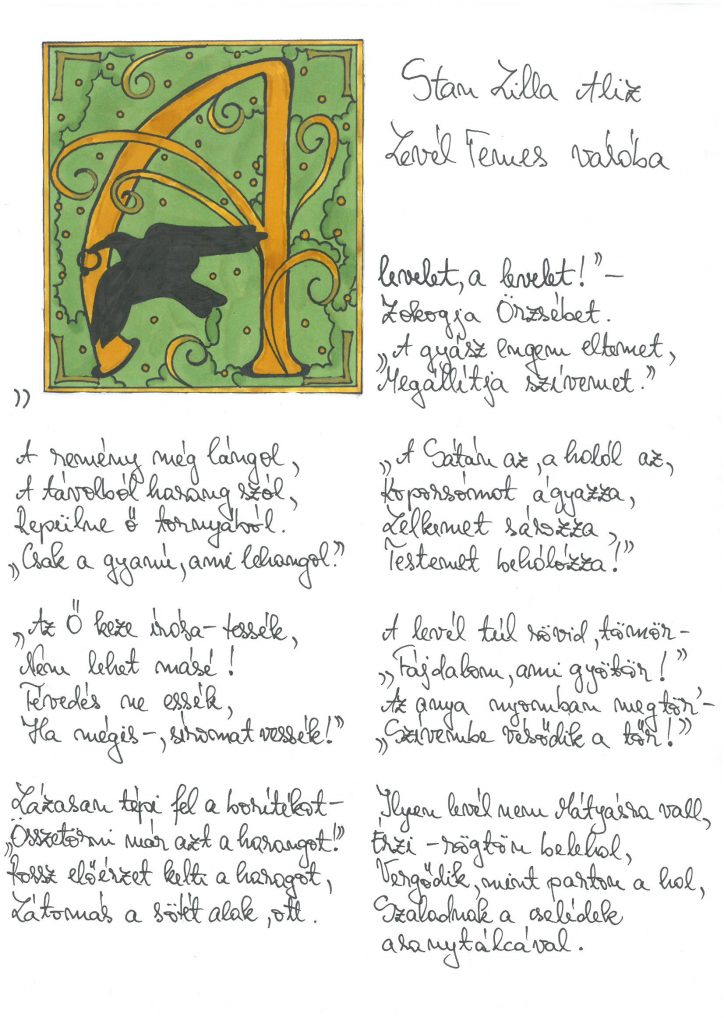 Stan Lilla Aliz
Levél Temes
„A
levelet, a levelet!”–
Zokogja Örzsébet.
„A gyász engem eltemet,
Megállítja szívemet.”
A remény még lángol,
A távolból harang szól,
Repülne ő tornyából.
„Csak a gyanú, ami lehangol.”
„Az Ő keze írása-tessék,
Nem lehet másé!
Tévedés ne essék,
Ha mégis-, síromat vessék!”
Lázasan tépi fel a borítékot-
„Összetörni már azt a harangot!”
Rossz előérzet kelti a haragot,
Látomás a sötét alak, ott.
„A Sátán az, a holól az,
Koporsómat ágyazza,
Lelkemet sározza,
Testemet behálózza!”
A levél túl rövid, tömör-
„Fájdalom, ami gyötör!”
Az anya nyomban megtör-
„Szívembe vésődik a tőr!”
Ilyen levél nem Mátyásra vall,
Érzi -rögtön belehal,
Vergődik, mint parton a hal,
Szaladnak a cselédek
aranytálcával.